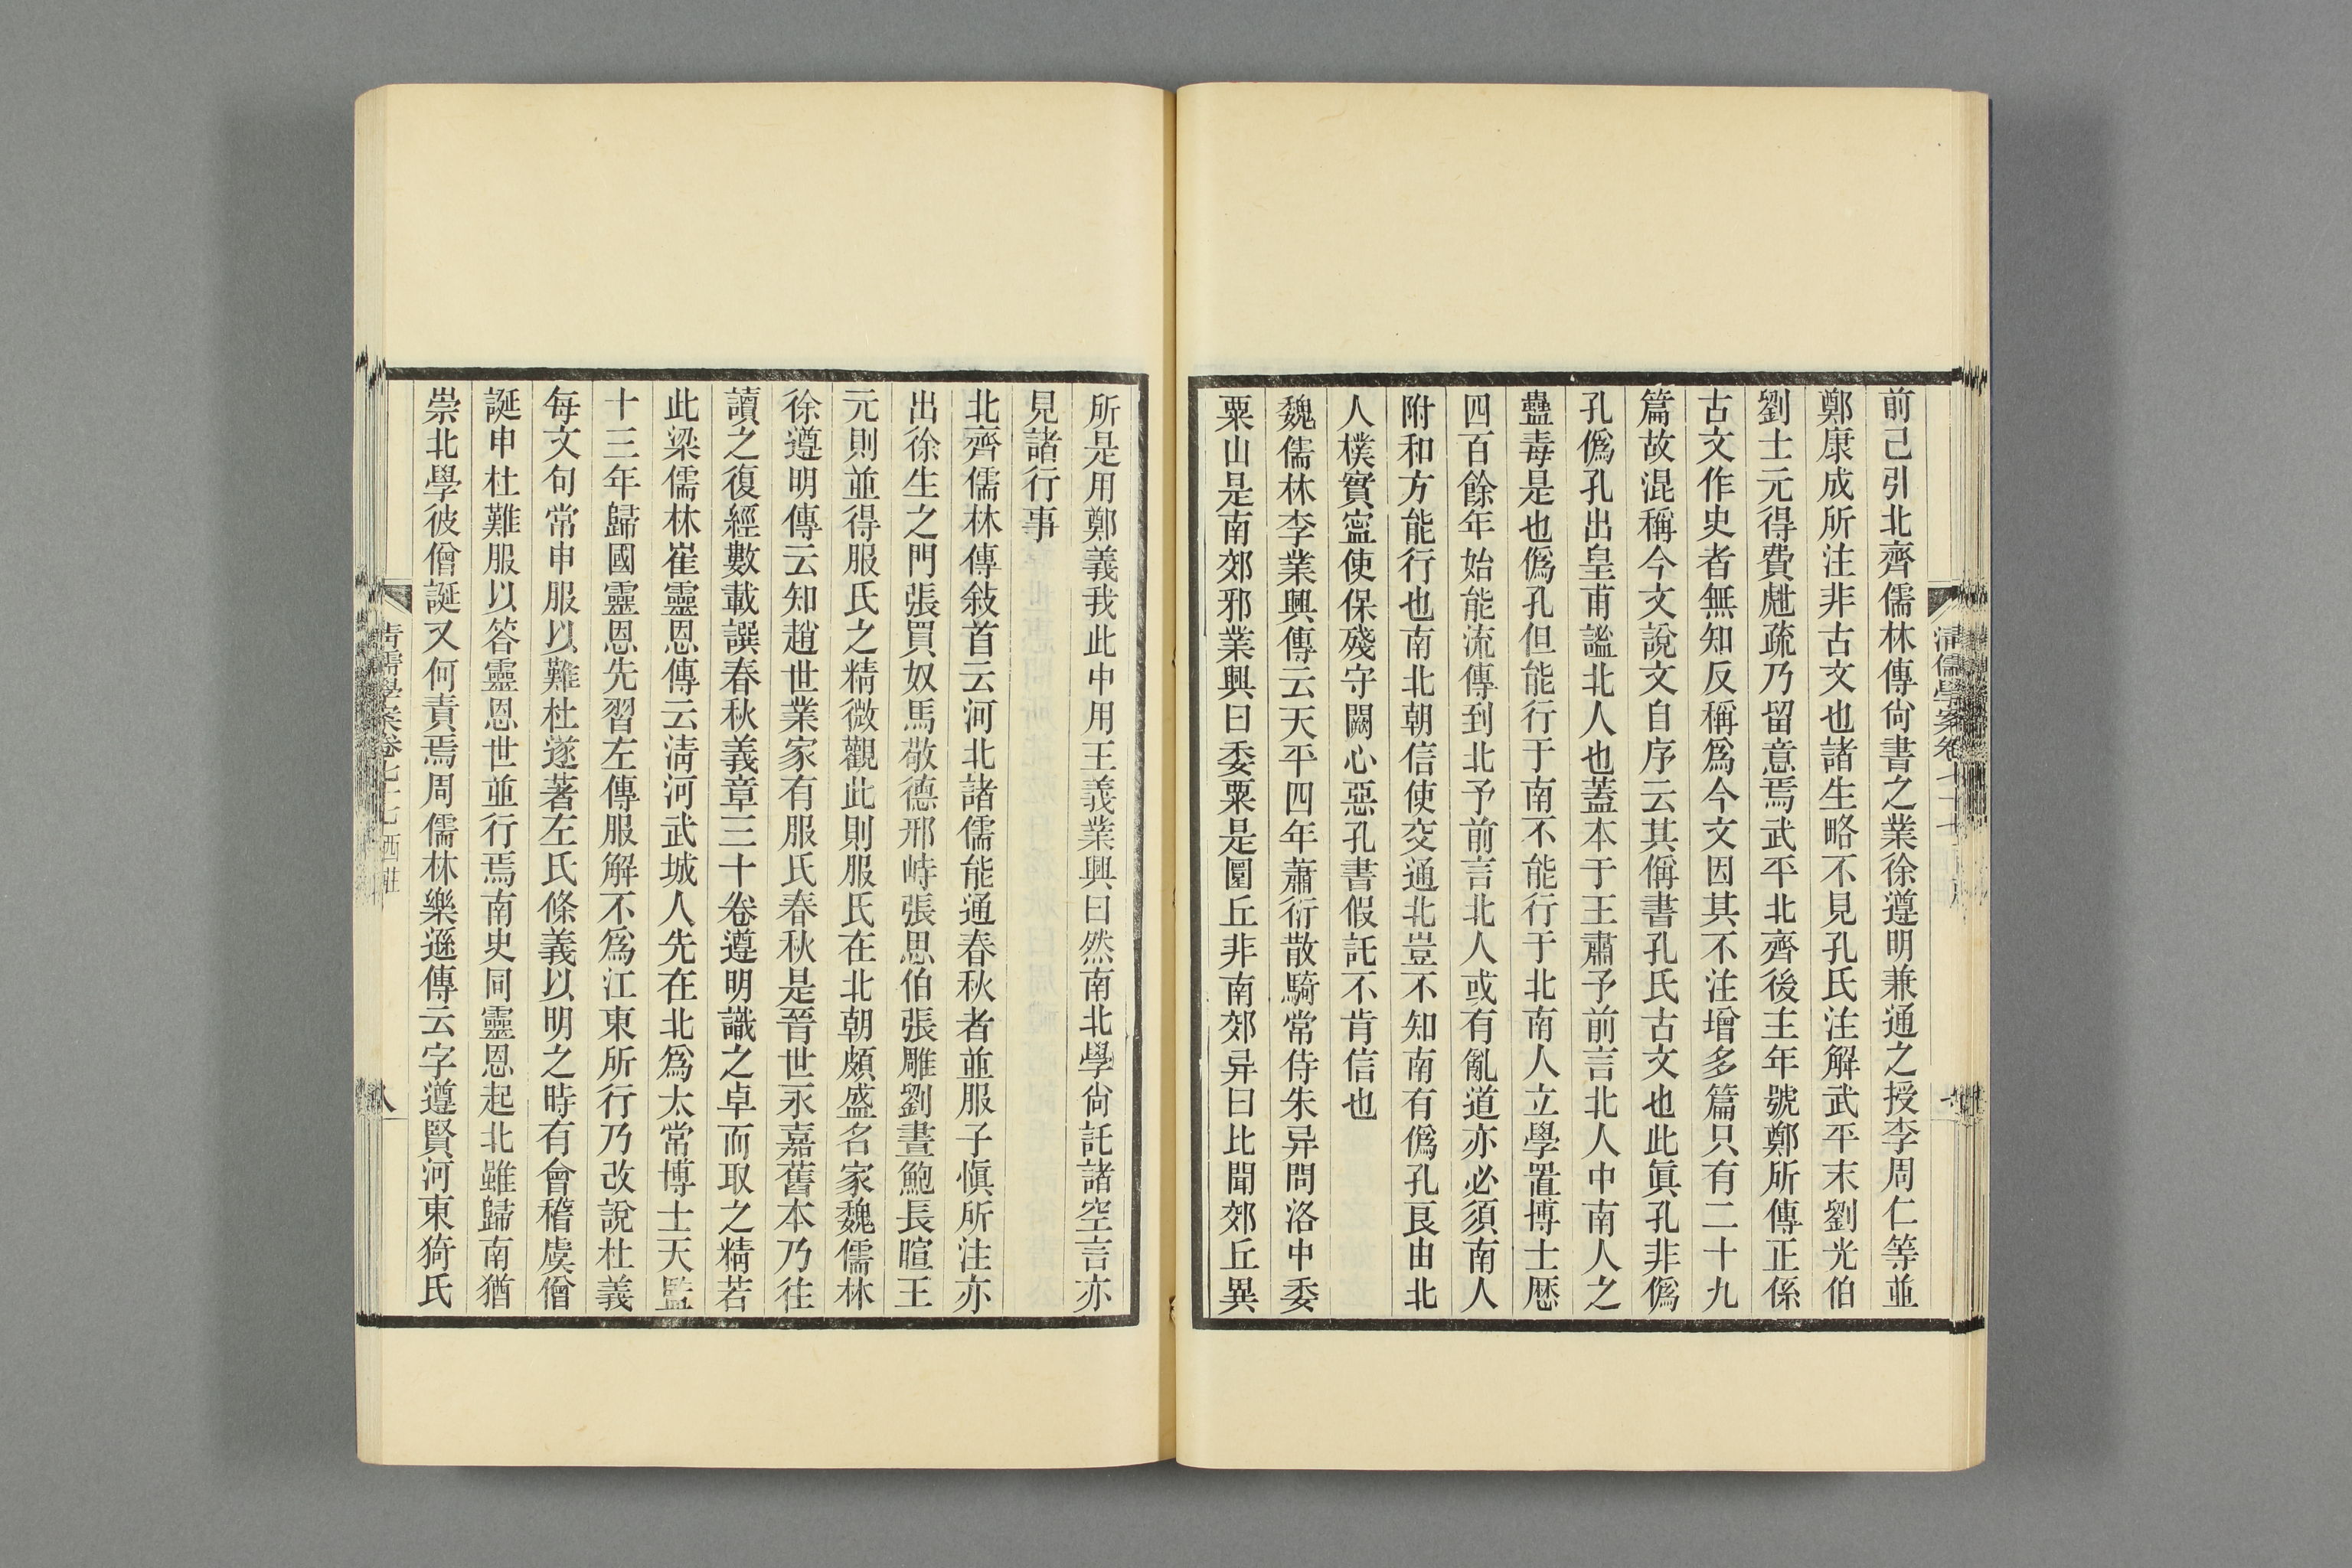 前已引北齊儒林傳尙書之業徐遵明兼通之授李周仁等並
鄭康成所注非古文也諸生略不見孔氏注解武平末劉光伯
劉士元得費甝疏乃留意焉武平北齊後主年號鄭所傳正係
古文作史者無知反稱爲今文因其不注增多篇只有二十九
篇故混稱今文說文自序云其偁書孔氏古文也此眞孔非僞
孔僞孔出皇甫謐北人也蓋本于王肅予前言北人中南人之
蠱毒是也僞孔但能行于南不能行于北南人立學置博士歷
四百餘年始能流傳到北予前言北人或有亂道亦必須南人
附和方能行也南北朝信使交通北豈不知南有僞孔良由北
人樸實寍使保殘守闕心惡孔書假託不肯信也
魏儒林李業興傳云天平四年蕭衍散騎常侍朱异問洛中委
粟山是南郊邪業興曰委粟是圜丘非南郊异曰比聞郊丘異
所是用鄭義我此中用王義業興曰然南北學尙託諸空言亦
見諸行事
北齊儒林傳敍首云河北諸儒能通春秋者並服子愼所注亦
出徐生之門張買奴馬敬德邢峙張思伯張雕劉晝鮑長暄王
元則並得服氏之精微觀此則服氏在北朝頗盛名家魏儒林
徐遵明傳云知趙世業家有服氏春秋是晉世永嘉舊本乃往
讀之復經數載譔春秋義章三十卷遵明識之卓而取之精若
此梁儒林崔靈恩傳云淸河武城人先在北爲太常博士天監
十三年歸國靈恩先習左傳服解不爲江東所行乃改說杜義
每文句常申服以難杜遂著左氏條義以明之時有會稽虞僧
誕申杜難服以答靈恩世並行焉南史同靈恩起北雖歸南猶
崇北學彼僧誕又何責焉周儒林樂遜傳云字遵賢河東猗氏
清儒學案卷七十七 西莊
八